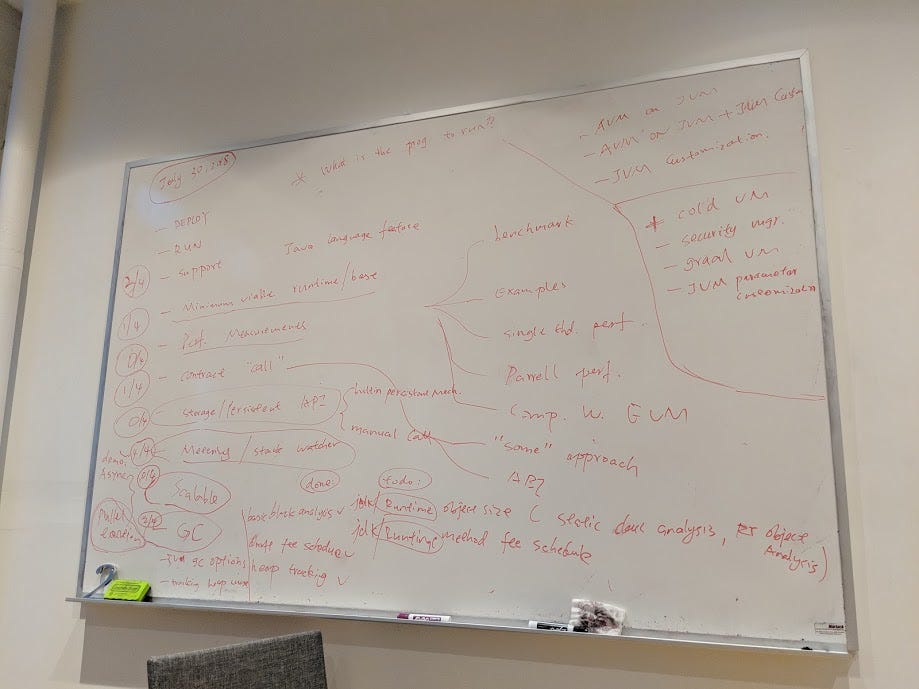 July 30, 2018
* What is the prog to run??
- AVM on JVM
- AVM on JVM + JVM Custom
- JVM Customization.
* cold VM
- security mgr.
- graal VM
- JVM parameter
customization
- DEPLOY
- RUN
2/4 - support Java language feature
1/4 - Minimum viable runtime/base
0/4 - Perf. Measurements
1/4 - contract "call"
0/4 - storage/Persistent API { builtin persistant Mech.
manual call
4/4 - Metering / stack watcher
Scalable
GC
- JVM gc options
- tracking heap usage
demo:
Async
benchmark
Examples
single thd. perf.
Parrell perf.
Comp. W. EVM
"some" approach
API
done:
basic block analysis ✓
fee schedule ✓
heap tracking ✓
todo:
jdk/Runtime object size ( static class analysis, RT object
Analysis)
jdk/Runtime method fee schedule